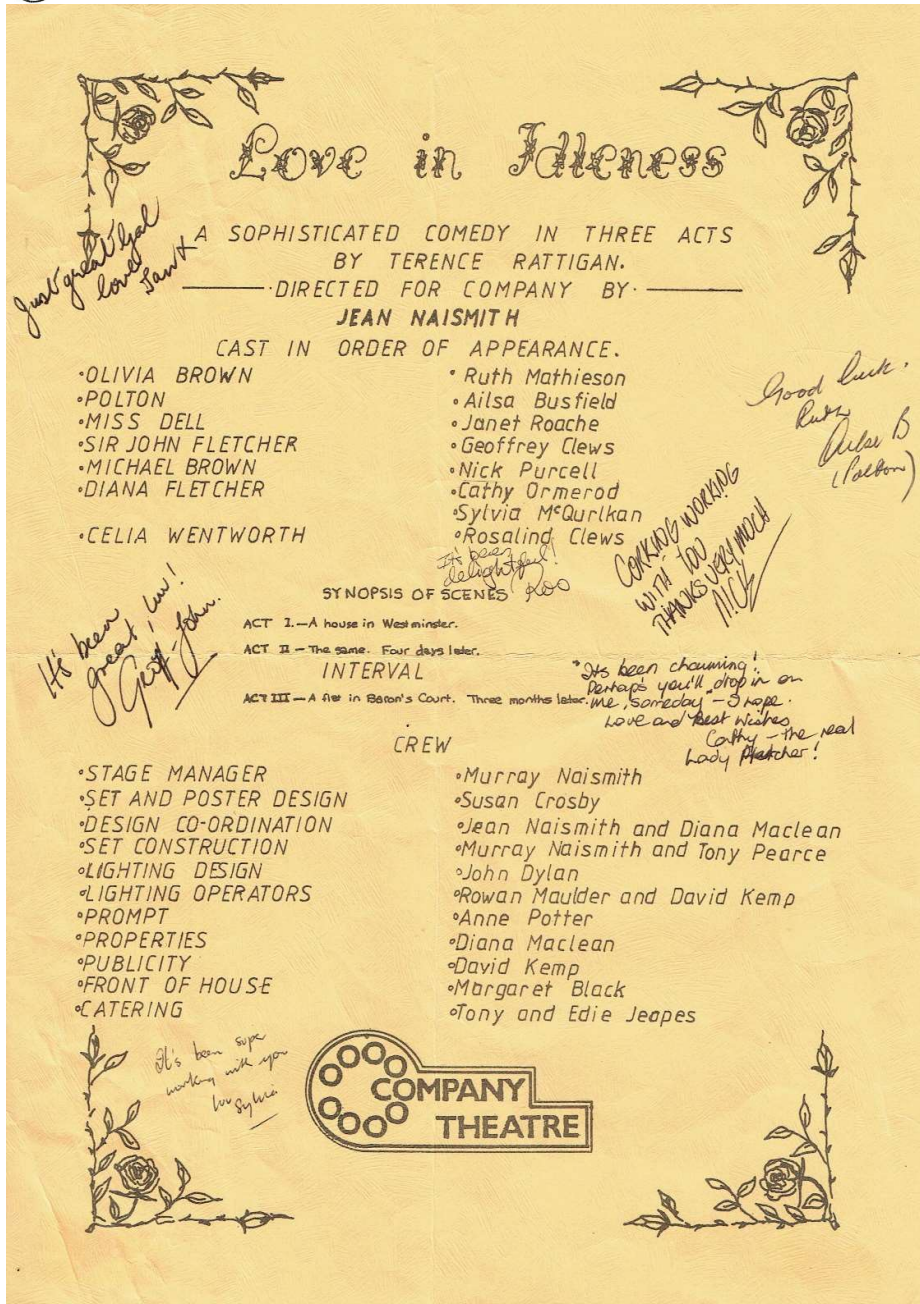 Love in Idleness
A SOPHISTICATED COMEDY IN THREE ACTS
BY TERENCE RATTIGAN.
DIRECTED FOR COMPANY BY
JEAN NAISMITH
Just great Gal
love
Jan X
CAST IN ORDER OF APPEARANCE.
•OLIVIA BROWN •Ruth Mathieson
•POLTON •Ailsa Busfield
•MISS DELL •Janet Roache
•SIR JOHN FLETCHER •Geoffrey Clews
•MICHAEL BROWN •Nick Purcell
•DIANA FLETCHER •Cathy Ormerod
•Sylvia McQurlkan
•CELIA WENTWORTH •Rosalind Clews
Good luck.
Ruth
Ailsa B
(Polton)
It's been
delightful!
Roo
CORKING WORKING
WITH YOU
THANKS VERY MUCH
NICK
It's been
great, luv!
Geoff-John.
SYNOPSIS OF SCENES
ACT I.—A house in Westminster.
ACT II—The same. Four days later.
INTERVAL
ACT III—A flat in Baron's Court. Three months later.
"Its been charming!
Perhaps you'll drop in on
me, someday"-I hope.
Love and Best Wishes
Cathy - the real
Lady Fletcher!
CREW
•STAGE MANAGER •Murray Naismith
•SET AND POSTER DESIGN •Susan Crosby
•DESIGN CO-ORDINATION •Jean Naismith and Diana Maclean
•SET CONSTRUCTION •Murray Naismith and Tony Pearce
•LIGHTING DESIGN •John Dylan
•LIGHTING OPERATORS •Rowan Maulder and David Kemp
•PROMPT •Anne Potter
•PROPERTIES •Diana Maclean
•PUBLICITY •David Kemp
•FRONT OF HOUSE •Margaret Black
•CATERING •Tony and Edie Jeapes
It's been supe
working with you
luv Sylvia
COMPANY
THEATRE